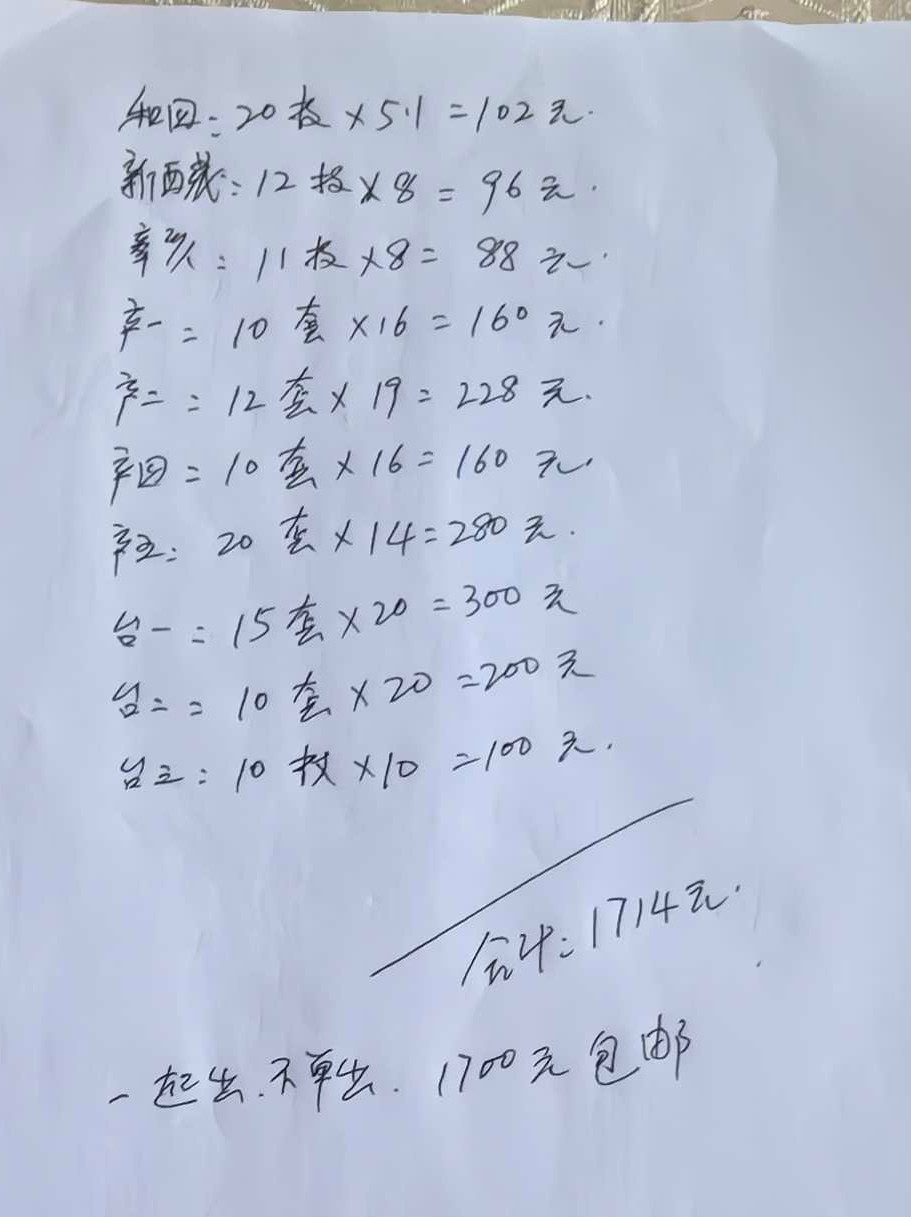 和四:20枚×5.1=102元.
新西藏:12枚×8=96元.
辛亥:11枚×8=88元.
产一:10套×16=160元.
产二:12套×19=228元.
产四:10套×16=160元.
产五:20套×14=280元.
台一:15套×20=300元
台二:10套×20=200元
台三:10枚×10=100元.
合计:1714元.
一起出.不单出.1700元包邮